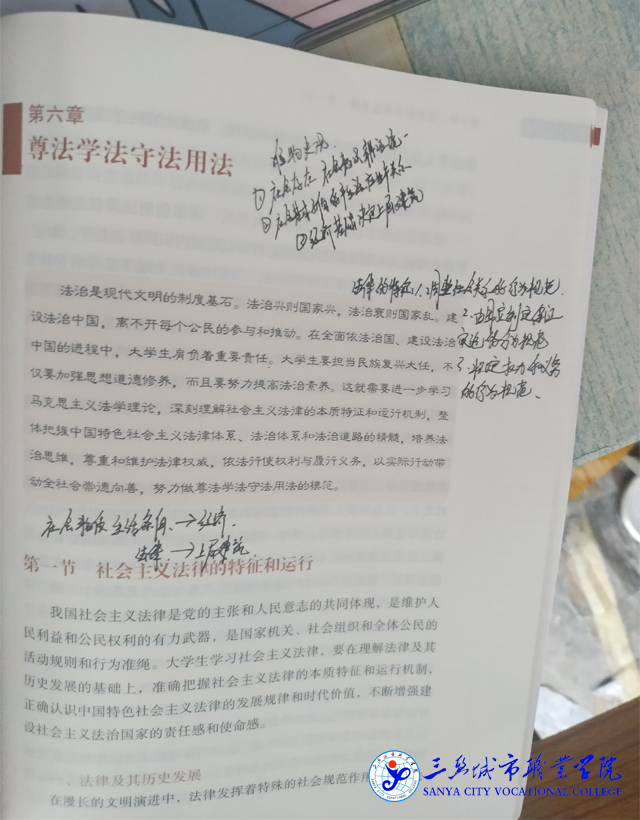 第六章
尊法学法守法用法
唯物史观
① 社会存在 社会意识 辩证统一
②
③ 经济基础决定上层建筑
法律的特征1、调整社会关系的行为规范
2、由国家制定保证
实施的行为规范
3、规定权力和义务
的行为规范、
法治是现代文明的制度基石。法治兴则国家兴，法治衰则国家乱。建
设法治中国，离不开每个公民的参与和推动。在全面依法治国、建设法治
中国的进程中，大学生肩负着重要责任。大学生要担当民族复兴大任，不
仅要加强思想道德修养，而且要努力提高法治素养。这就需要进一步学习
马克思主义法学理论，深刻理解社会主义法律的本质特征和运行机制，整
体把握中国特色社会主义法律体系、法治体系和法治道路的精髓，培养法
治思维，尊重和维护法律权威，依法行使权利与履行义务，以实际行动带
动全社会崇德向善，努力做尊法学法守法用法的模范。
社会物质生活条件→经济．
法律→上层建筑．
第一节 社会主义法律的特征和运行
我国社会主义法律是党的主张和人民意志的共同体现，是维护人
民利益和公民权利的有力武器，是国家机关、社会组织和全体公民的
活动规则和行为准绳。大学生学习社会主义法律，要在理解法律及其
历史发展的基础上，准确把握社会主义法律的本质特征和运行机制，
正确认识中国特色社会主义法律的发展规律和时代价值，不断增强建
设社会主义法治国家的责任感和使命感。
一、法律及其历史发展
在漫长的文明演进中，法律发挥着特殊的社会规范作用
三亚城市职业学院
SANYA CITY VOCATIONAL COLLEGE